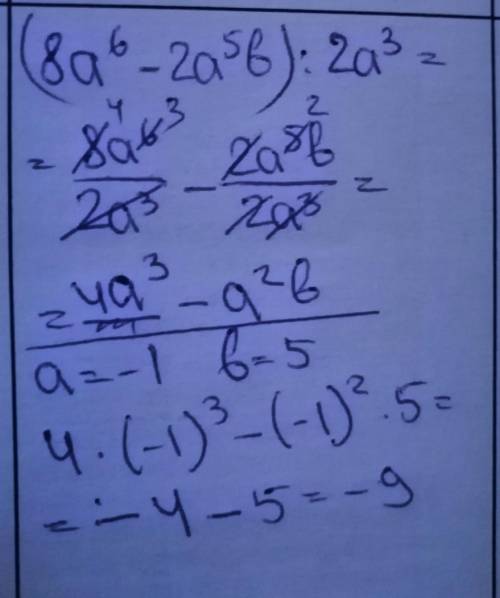 (8a⁶ - 2a⁵b) : 2a³ =
= 8a⁶/2a³ - 2a⁵b/2a³ =
4 3 2
= 4a³ - a²b
a = -1 b = 5
4 · (-1)³ - (-1)² · 5 =
= -4 - 5 = -9